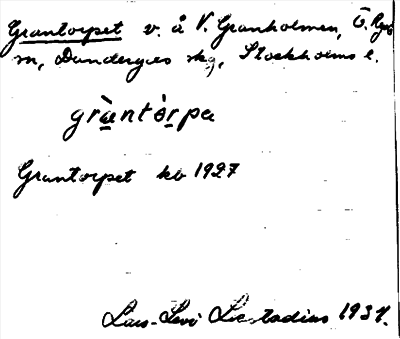 Grantorpet v. å V. Granholmen, Ö. Ryds
sn, Danderyds skg, Stockholms l.
gràntòrpa
Grantorpet kb 1927
Lars-Levi Læstadius 1937.